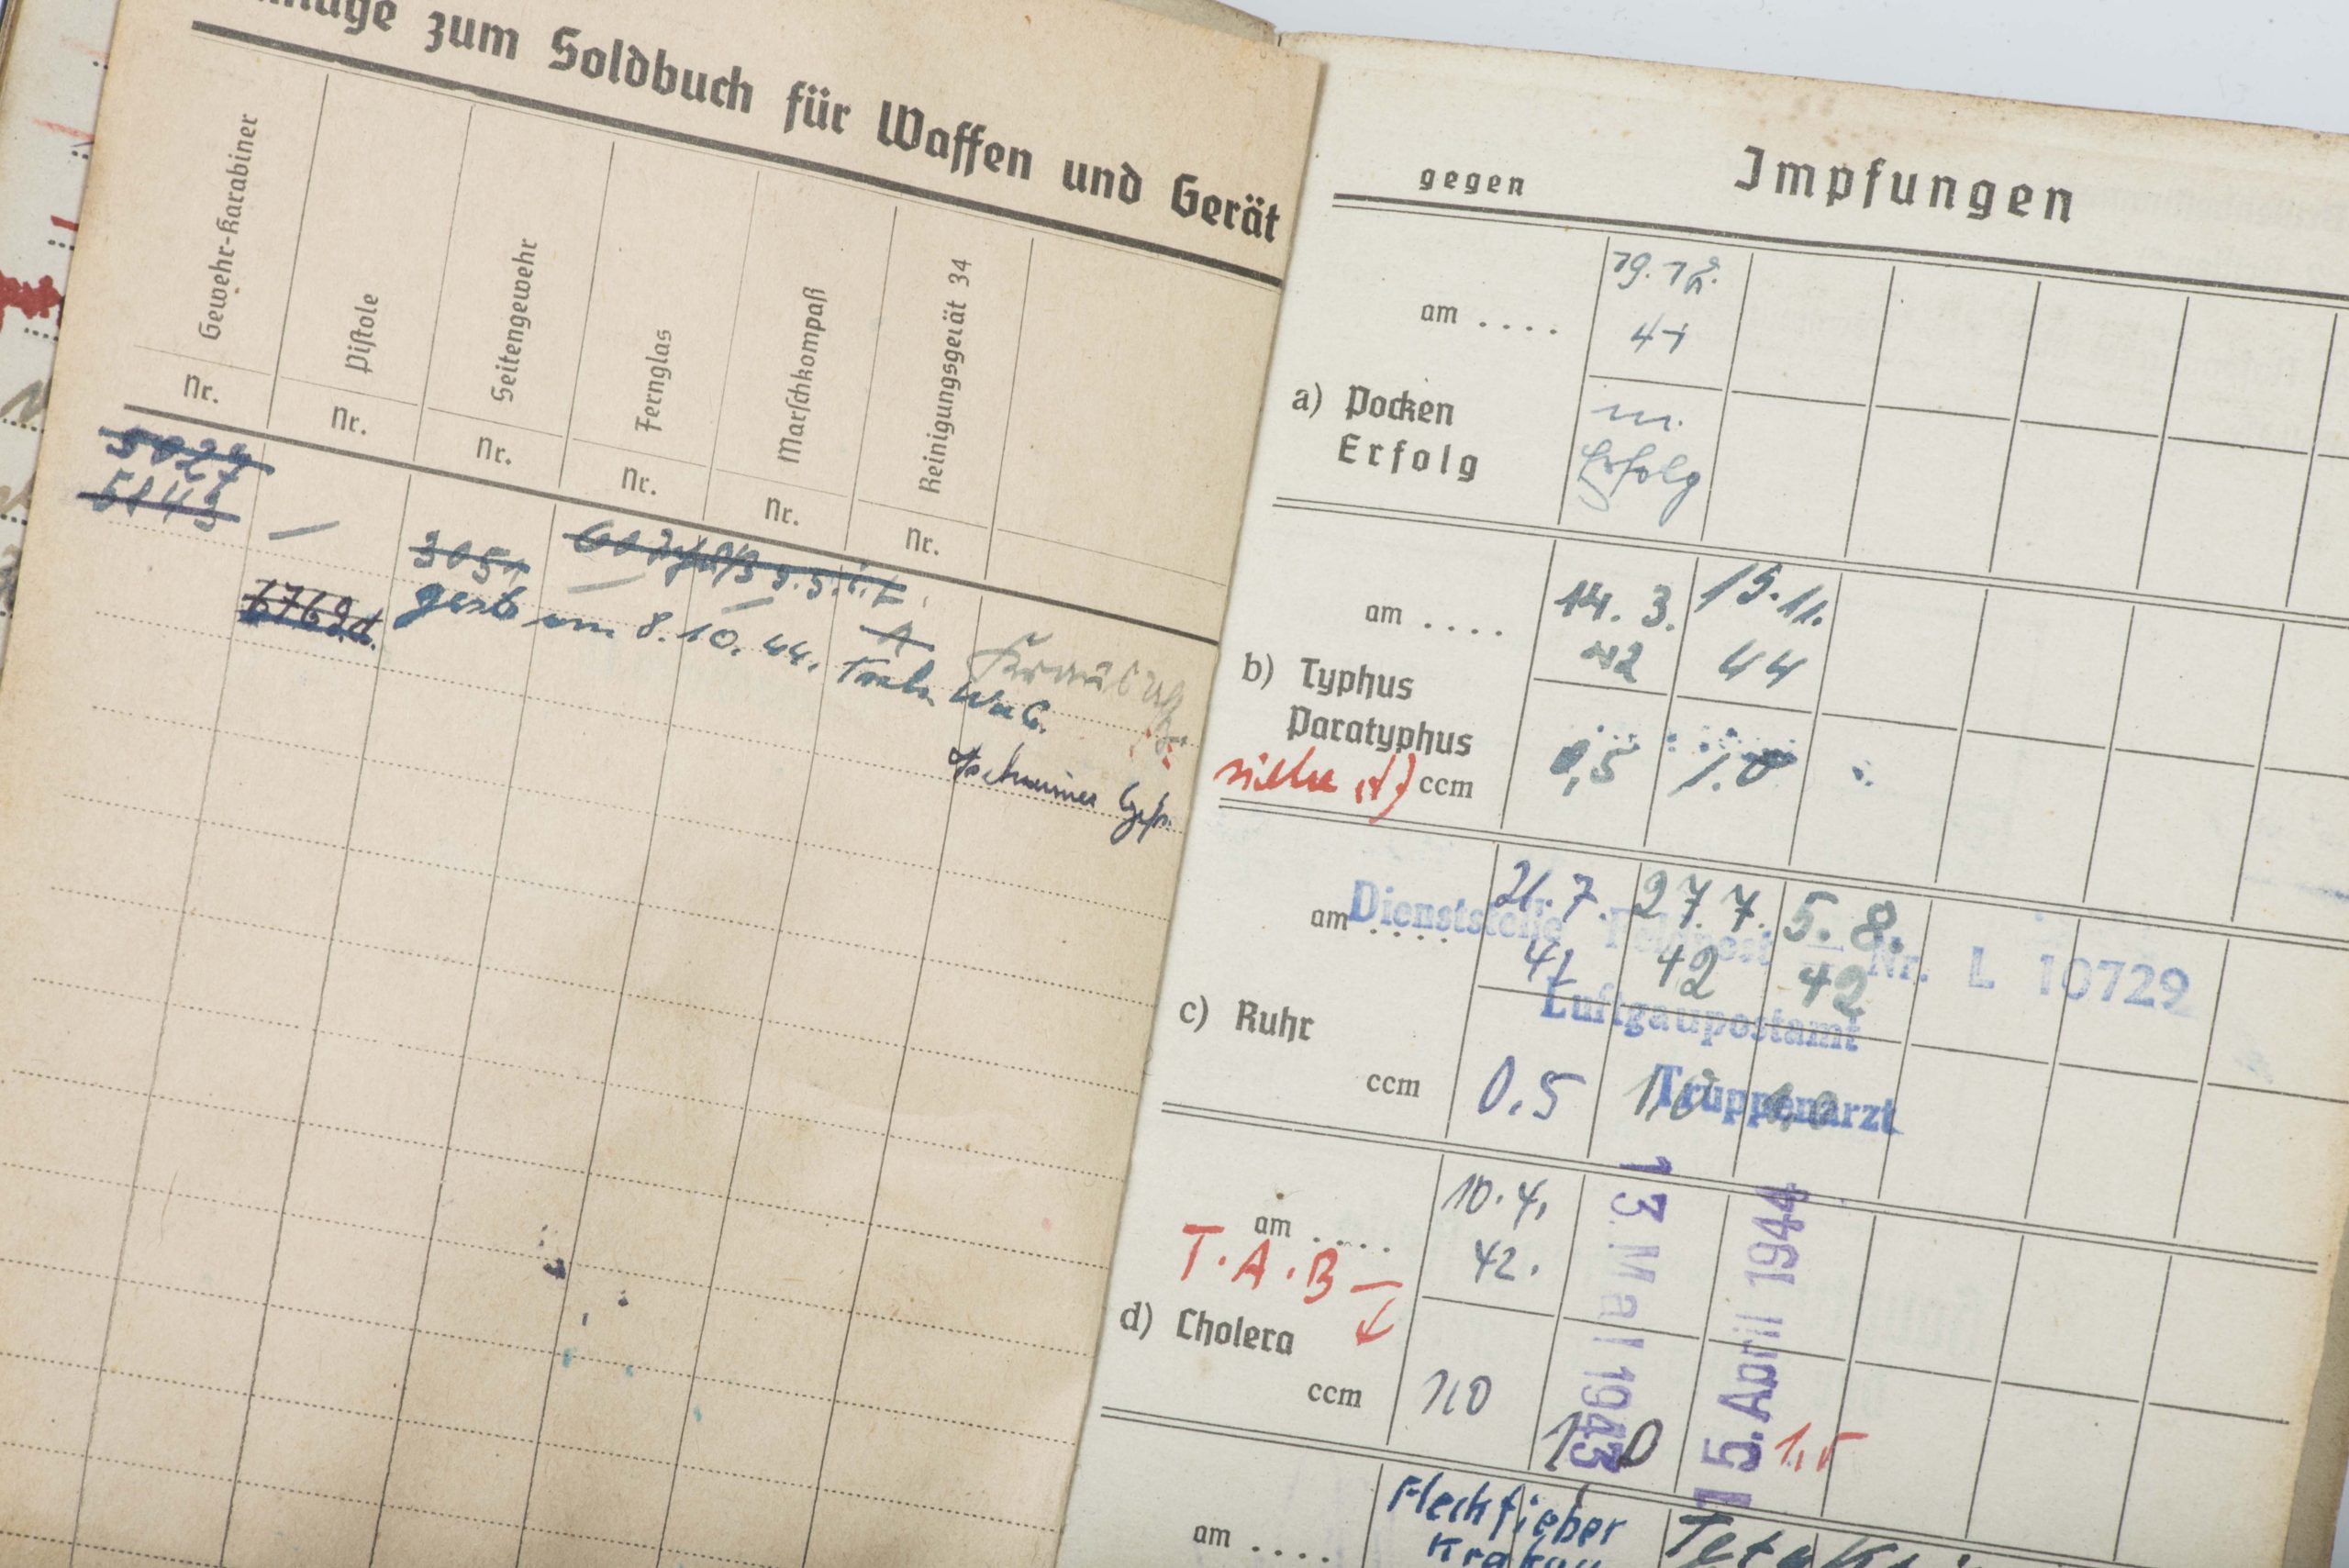 zum Soldbuch für Waffen und Gerät
Gewehr-Karabiner
Pistole
Seitengewehr
Fernglas
Marschkompaß
Reinigungsgerät 34
Nr. Nr. Nr. Nr. Nr. Nr.
5145
6769d.
am 8. 10. 44.
gegen Impfungen
am ....
41
a) Pocken m.
Erfolg Erfolg
am .... 14. 3. 15. 11.
42 44
b) Typhus
Paratyphus
siehe d) ccm 0,5 1.0
am .... 21. 7. 27. 7. 5. 8.
41 42 42
Dienststelle Feldpost Nr. L 10729
Luftgaupostamt
c) Ruhr
Truppenarzt
ccm 0,5 1,0 1,0
am .... 10. 4.
42.
13. Mai 1943
15. April 1944
T. A. B
d) Cholera
ccm 1,0 1,0 1,5
am .... Fleckfieber
Krakau